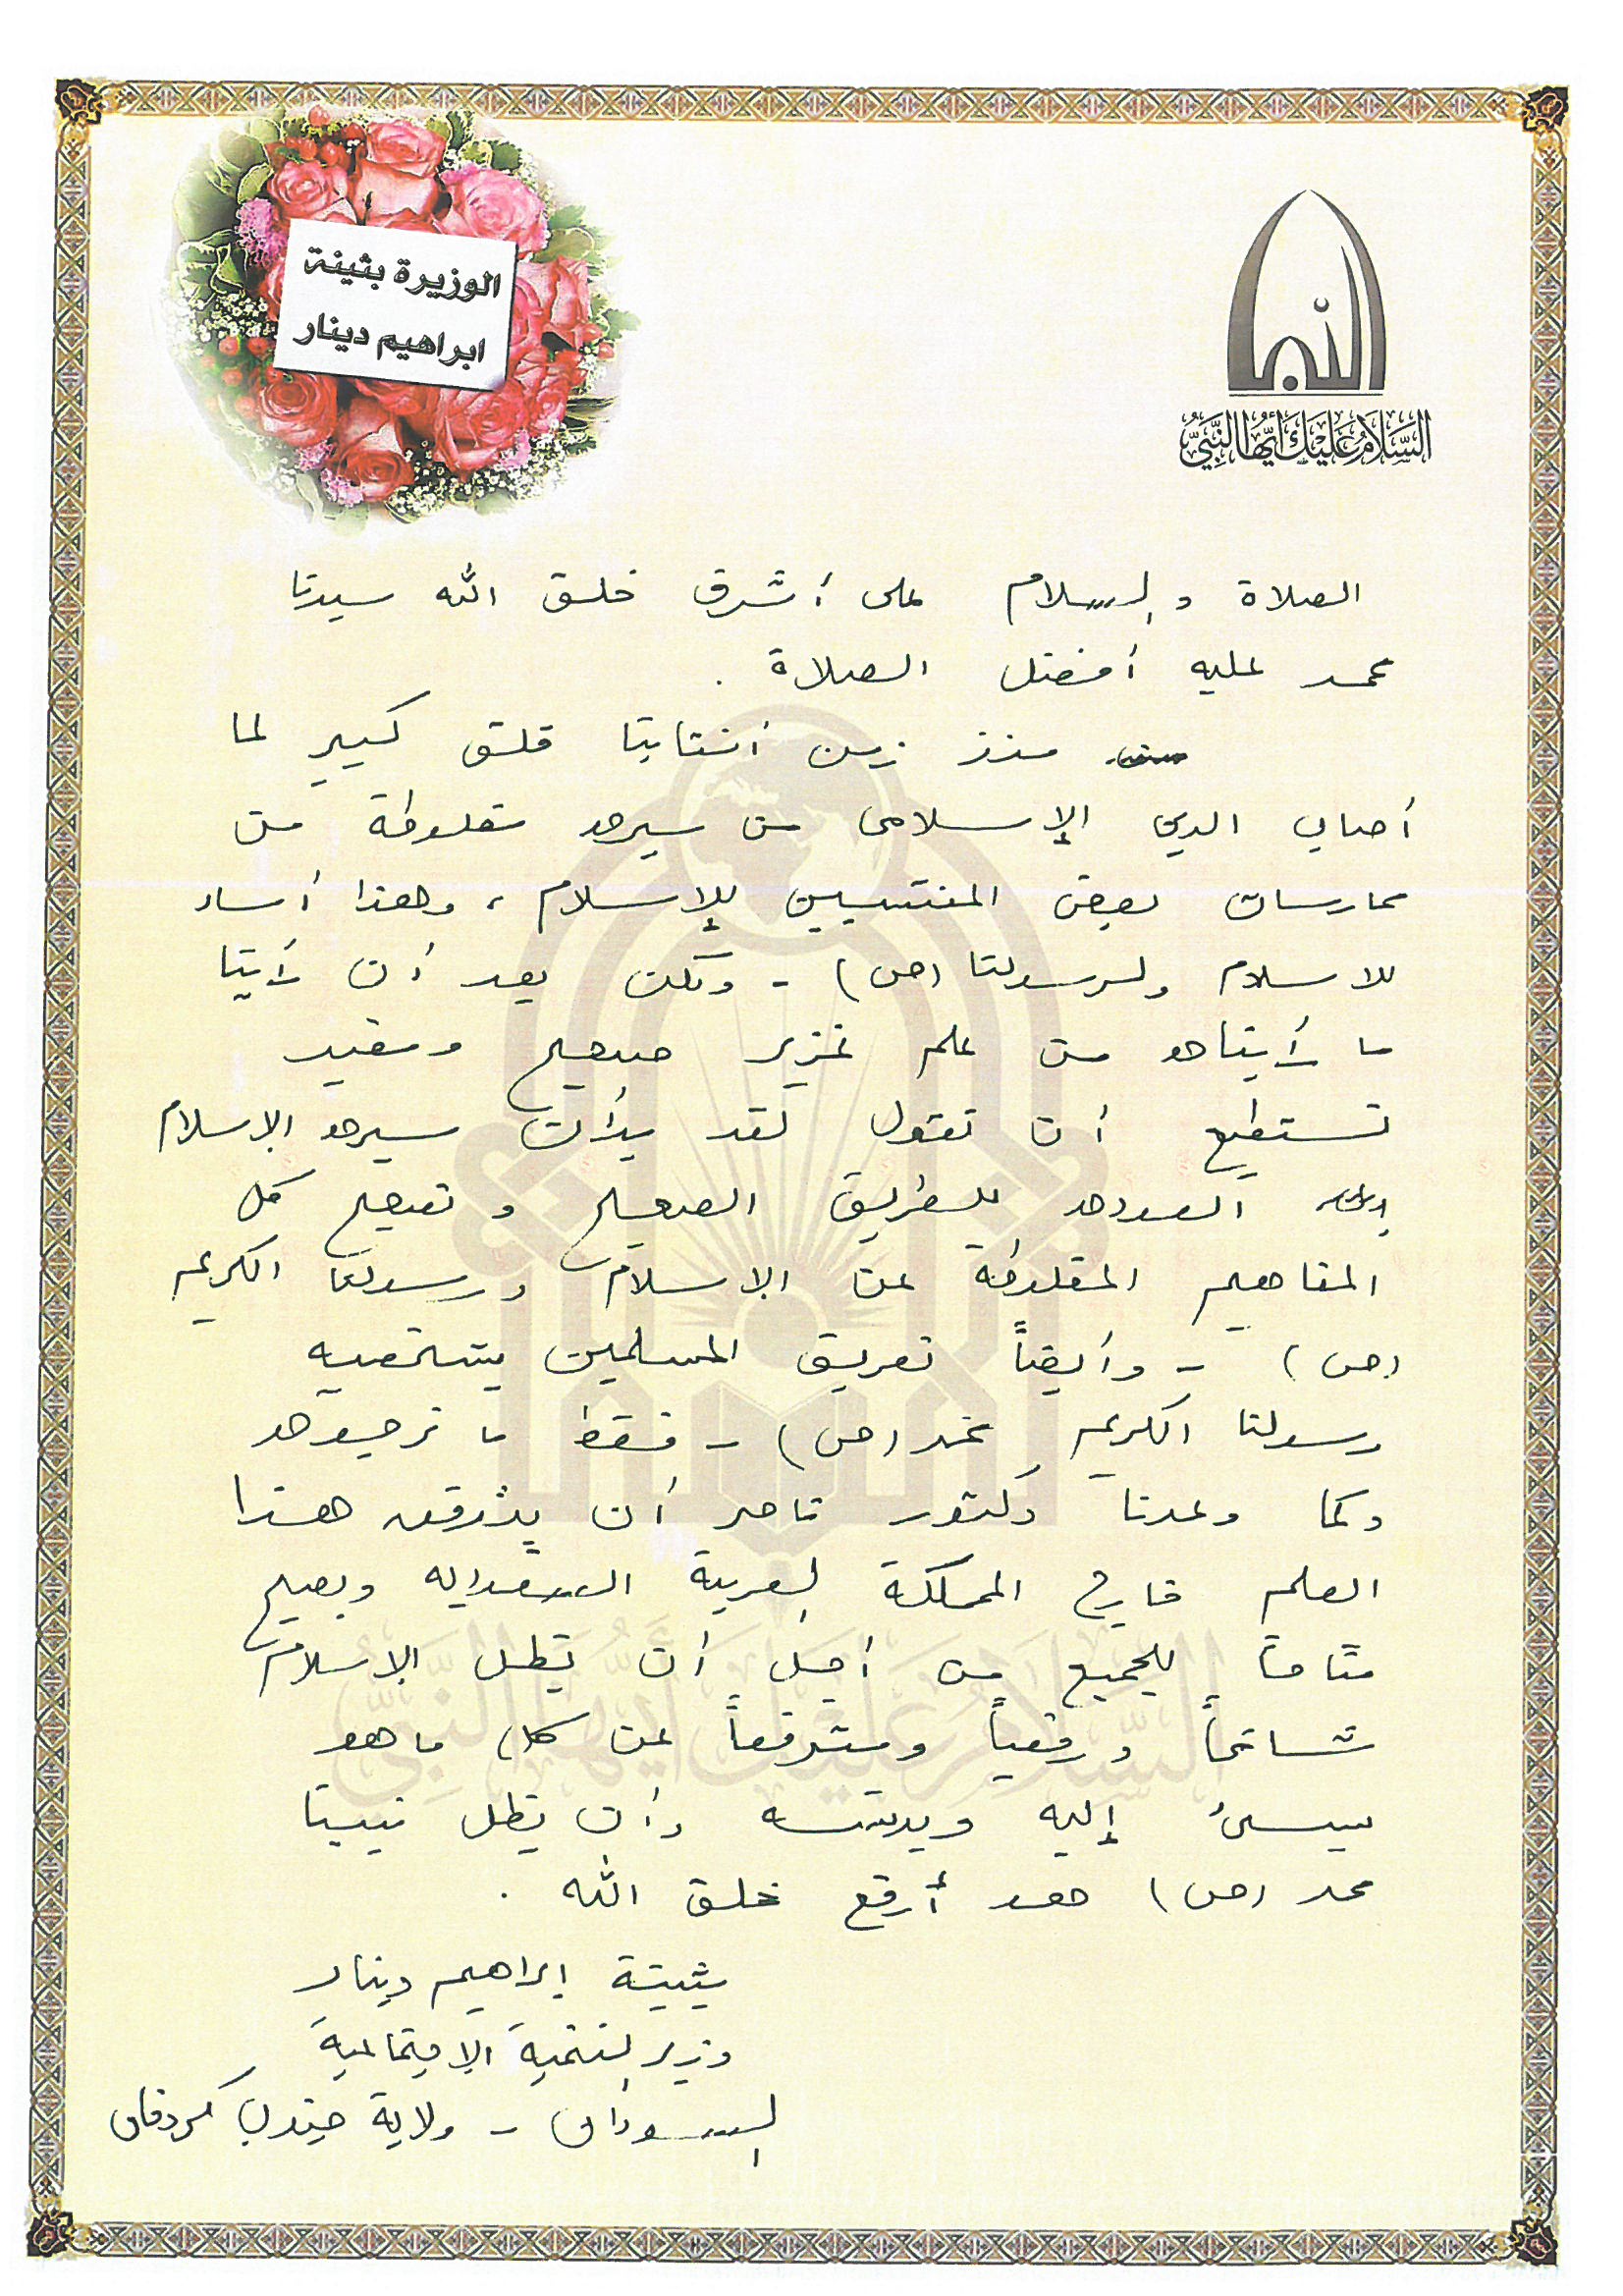 الوزيرة بثينة
ابراهيم دينار
السَّلَامُ عَلَيْكَ أَيُّهَا النَّبِيُّ
الصلاة والسلام على أشرف خلق الله سيدنا
محمد عليه أفضل الصلاة .
منذ زمن انتابنا قلق كبير لما
أصاب الدين الإسلامى من سيره مغلوطة من
ممارسات بعض المنتسبين للإسلام ، وهذا أساء
للاسلام ولرسولنا (ص) - ولكن بعد أن رأينا
ما رأيناه من علم غزير صحيح ومفيد
نستطيع أن نقول لقد بدأت سيره الإسلام
العوده للطريق الصحيح و تصحيح كل
المفاهيم المغلوطة عن الإسلام ورسولنا الكريم
(ص) - وأيضاً تعريف المسلمين بشخصيه
رسولنا الكريم محمد (ص) - فقط ما نرجوه
وكما وعدنا دكتور ناصر أن هذا
العلم خارج المملكة العربية السعوديه ويصبح
متاحاً للجميع من أجل أن يظل الإسلام
شامخاً ورفيعاً ومترفعاً عن كل ما هو
يسىء إليه ويدنسه وأن يظل نبينا
محمد (ص) هو أرفع خلق الله .
بثينة إبراهيم دينار
وزير التنمية الإجتماعية
السودان - ولاية جنوب كردفان